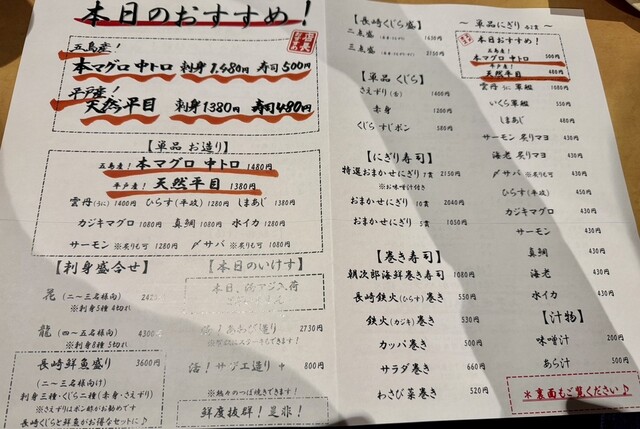 本日のおすすめ！
五島産！
本マグロ 中トロ 刺身 1,480円 寿司 500円
平戸産！
天然平目 刺身 1380円 寿司 480円
【単品 お造り】
五島産！ 本マグロ 中トロ 1480円
平戸産！ 天然平目 1380円
雲丹(うに) 1400円 ひらす(平政) 1280円 しまあじ 1280円
カジキマグロ 1080円 真鯛 1080円 水イカ 1280円
サーモン ※炙りも可 1280円 〆サバ ※炙りも可 1280円
【刺身盛合せ】
花 (二～三名様向)
※刺身5種 4切れ
龍 (四～五名様向) 4300円
※刺身8種 5切れ
長崎鮮魚盛り 3600円
(二～三名様向け)
刺身三種・くじら二種(赤身・さえずり)
※さえずりはポン酢がお勧めです
長崎くじらと鮮魚がお得なセットに♪
【本日のいけす】
本日、活アジ入荷
活！あわび造り 2730円
活！サザエ造り 800円
※熱々のつぼ焼きできます！
鮮度抜群！是非！
【長崎くじら盛】
二点盛 1630円
三点盛 2150円
【単品 くじら】
さえずり(舌) 1400円
赤身 1200円
くじら すじポン 580円
【にぎり寿司】
特選おまかせにぎり 7貫 2150円
※お味噌汁付き
おまかせにぎり 10貫 2040円
おまかせにぎり 5貫 1050円
【巻き寿司】
朝次郎海鮮巻き寿司 1080円
長崎鉄火(ひらす)巻き 550円
鉄火(カジキ)巻き 530円
カッパ巻き 500円
サラダ巻き 660円
わさび菜巻き 520円
～ 単品にぎり 各1貫 ～
本日おすすめ！
五島産！
本マグロ 中トロ 500円
平戸産！
天然平目 480円
雲丹(うに)軍艦 680円
いくら軍艦 550円
しまあじ 480円
サーモン 炙りマヨ 450円
海老 炙りマヨ 450円
〆サバ ※炙りも可 430円
ひらす(平政) 430円
カジキマグロ 430円
サーモン ※炙りも可 430円
真鯛 430円
海老 430円
水イカ 430円
【汁物】
味噌汁 200円
あら汁 500円
＊裏面もご覧ください♪